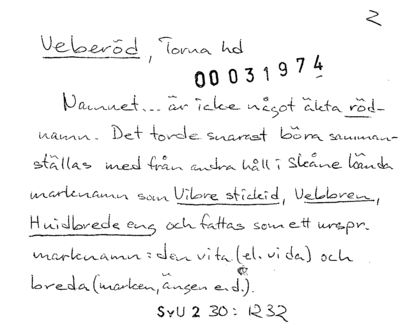 2
Veberöd, Torna hd
00031974
Namnet... är icke något äkta röd-
namn. Det torde snarast böra samman-
ställas med från andra håll i Skåne kända
marknamn som Vibre stickid, Vebbren,
Huidbrede eng och fattas som ett urspr.
marknamn: den vita (el. vida) och
breda (marken, ängen e.d.).
SvU 2 30: 1232